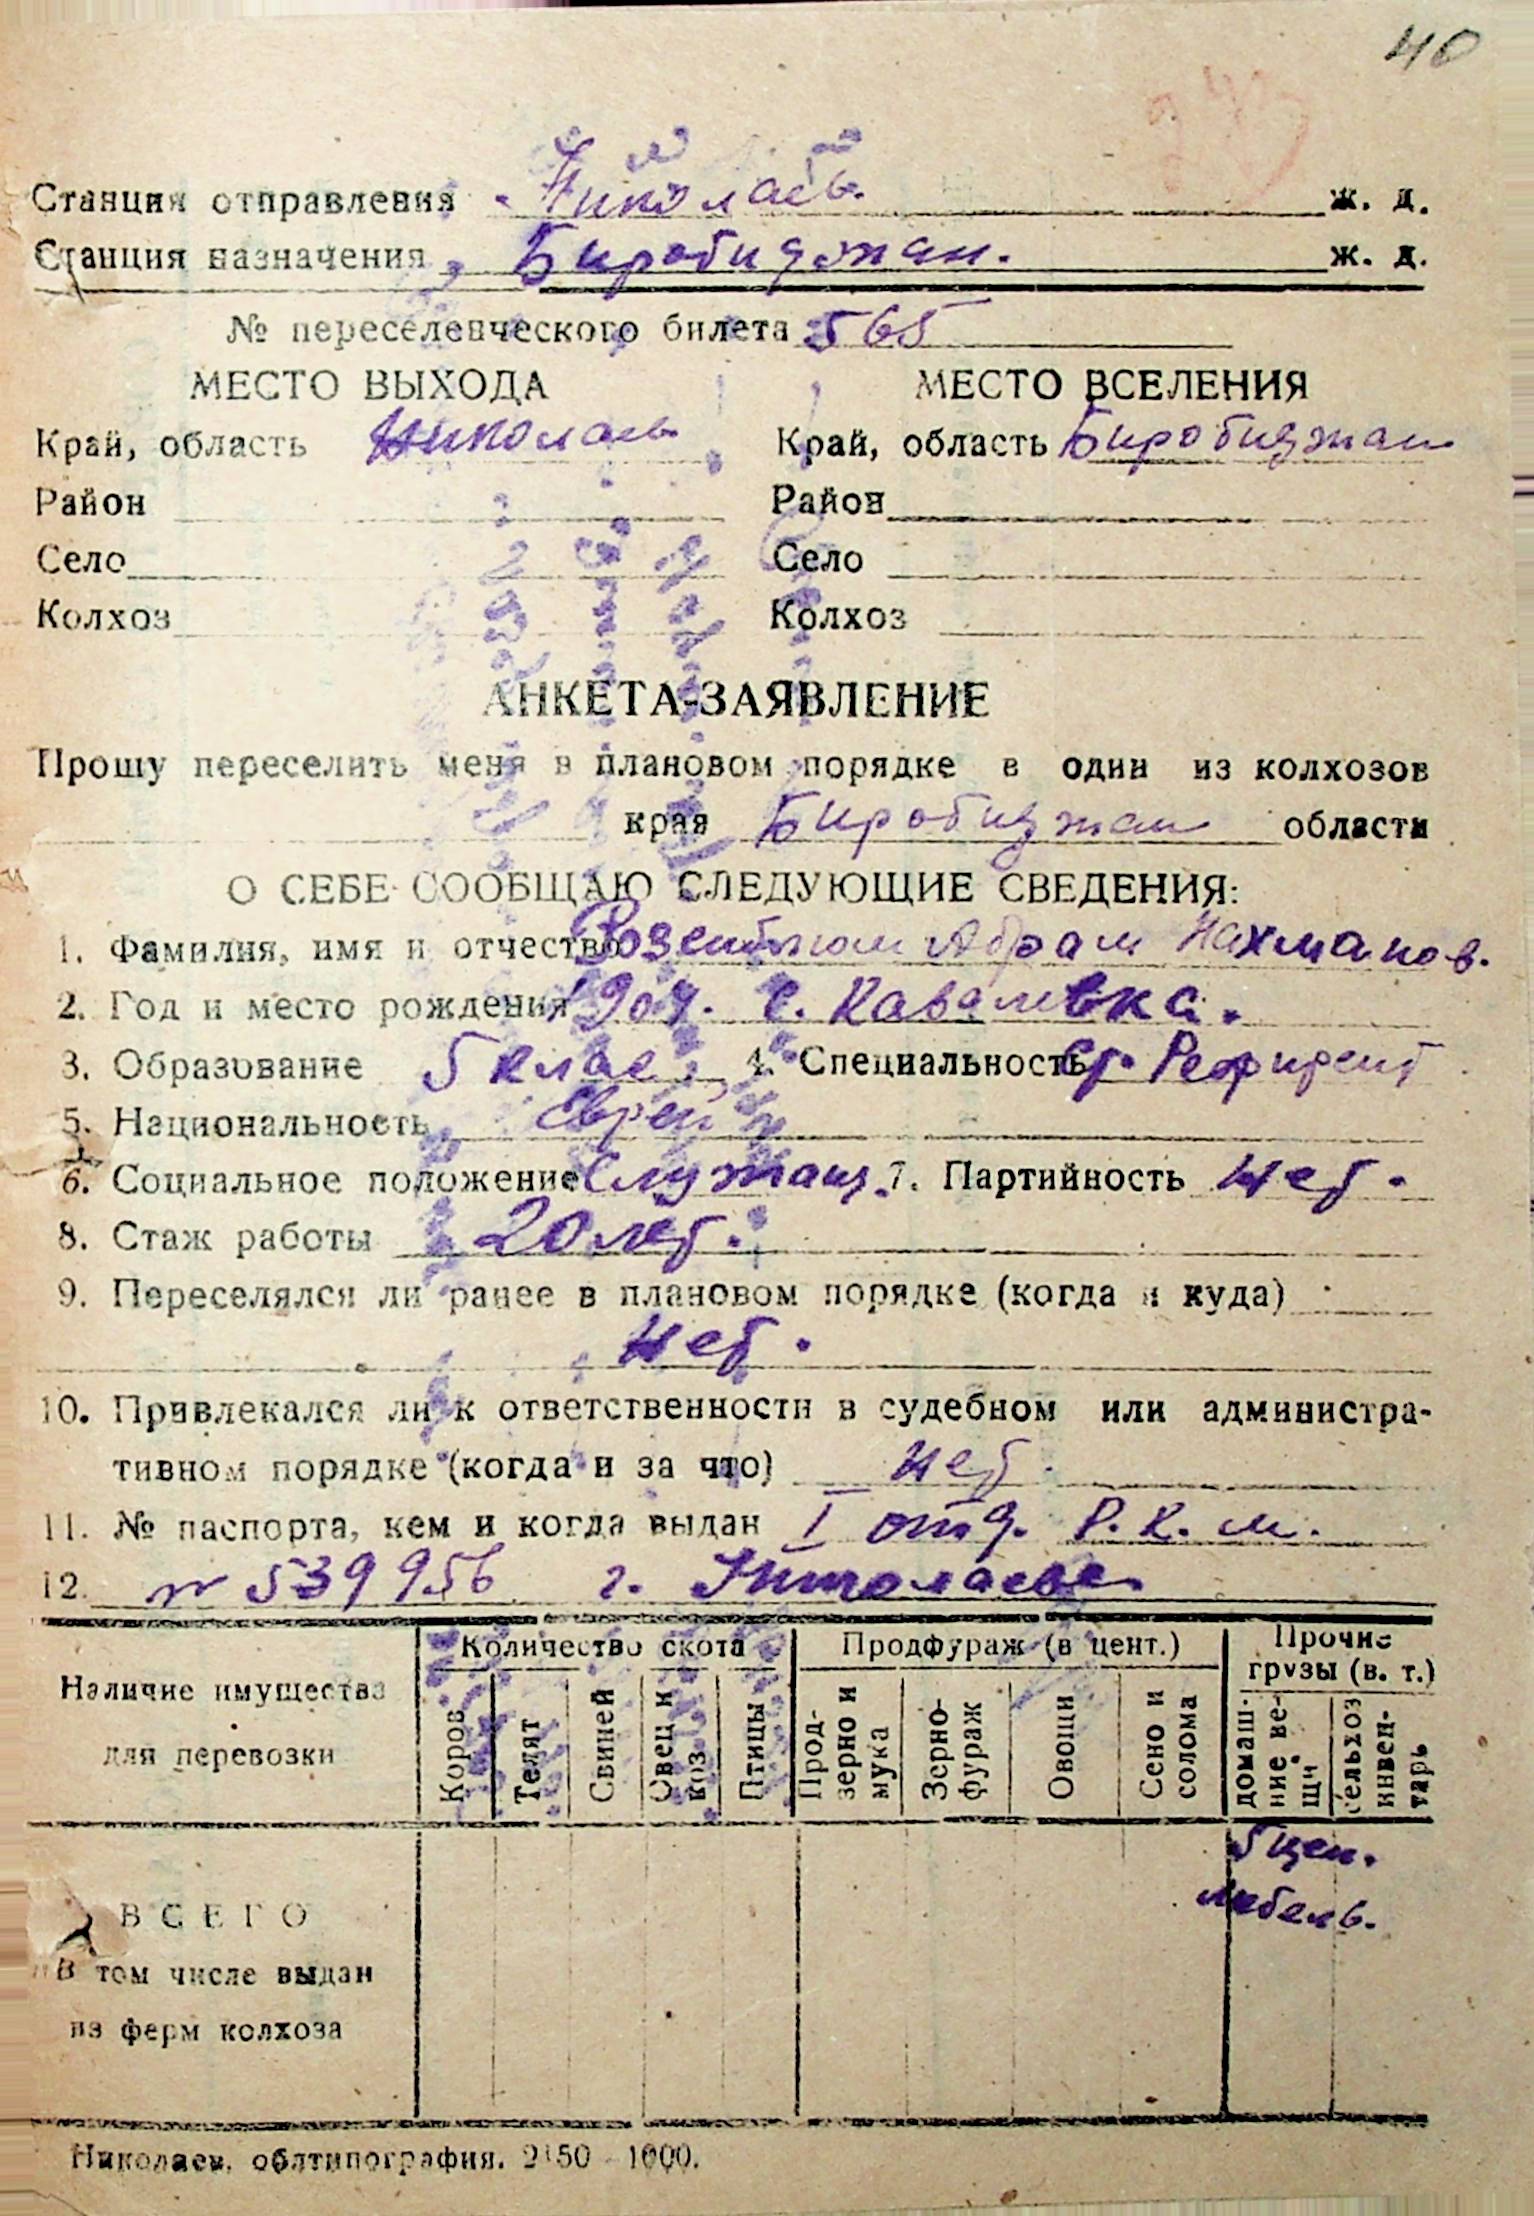 40
Станция отправления Николаев. ж. д.
Станция назначения Биробиджан. ж. д.
№ переселенческого билета 565
МЕСТО ВЫХОДА МЕСТО ВСЕЛЕНИЯ
Край, область Николаев Край, область Биробиджан
Район Район
Село Село
Колхоз Колхоз
АНКЕТА-ЗАЯВЛЕНИЕ
Прошу переселить меня в плановом порядке в один из колхозов
края Биробиджан области
О СЕБЕ СООБЩАЮ СЛЕДУЮЩИЕ СВЕДЕНИЯ:
1. Фамилия, имя и отчество Абрам Нахманов.
2. Год и место рождения с. Кавалевка.
3. Образование 5 клас. 4. Специальность
5. Национальность Еврей
6. Социальное положение Служащ. 7. Партийность Нет.
8. Стаж работы 20 лет.
9. Переселялся ли ранее в плановом порядке (когда и куда)
Нет.
10. Привлекался ли к ответственности в судебном или администра-
тивном порядке (когда и за что) Нет.
11. № паспорта, кем и когда выдан I отд. Р. К. М.
12. № 539956 г. Николаева
Наличие имущества для перевозки
Количество скота Продфураж (в цент.) Прочие грузы (в. т.)
Коров Телят Свиней Овец и коз Птицы Прод-зерно и мука Зерно-фураж Овощи Сено и солома домаш-ние ве-щи сельхоз инвен-тарь
5 цен.
мебель.
ВСЕГО
В том числе выдан
из ферм колхоза
Николаев, облтипография. 2150—1000.